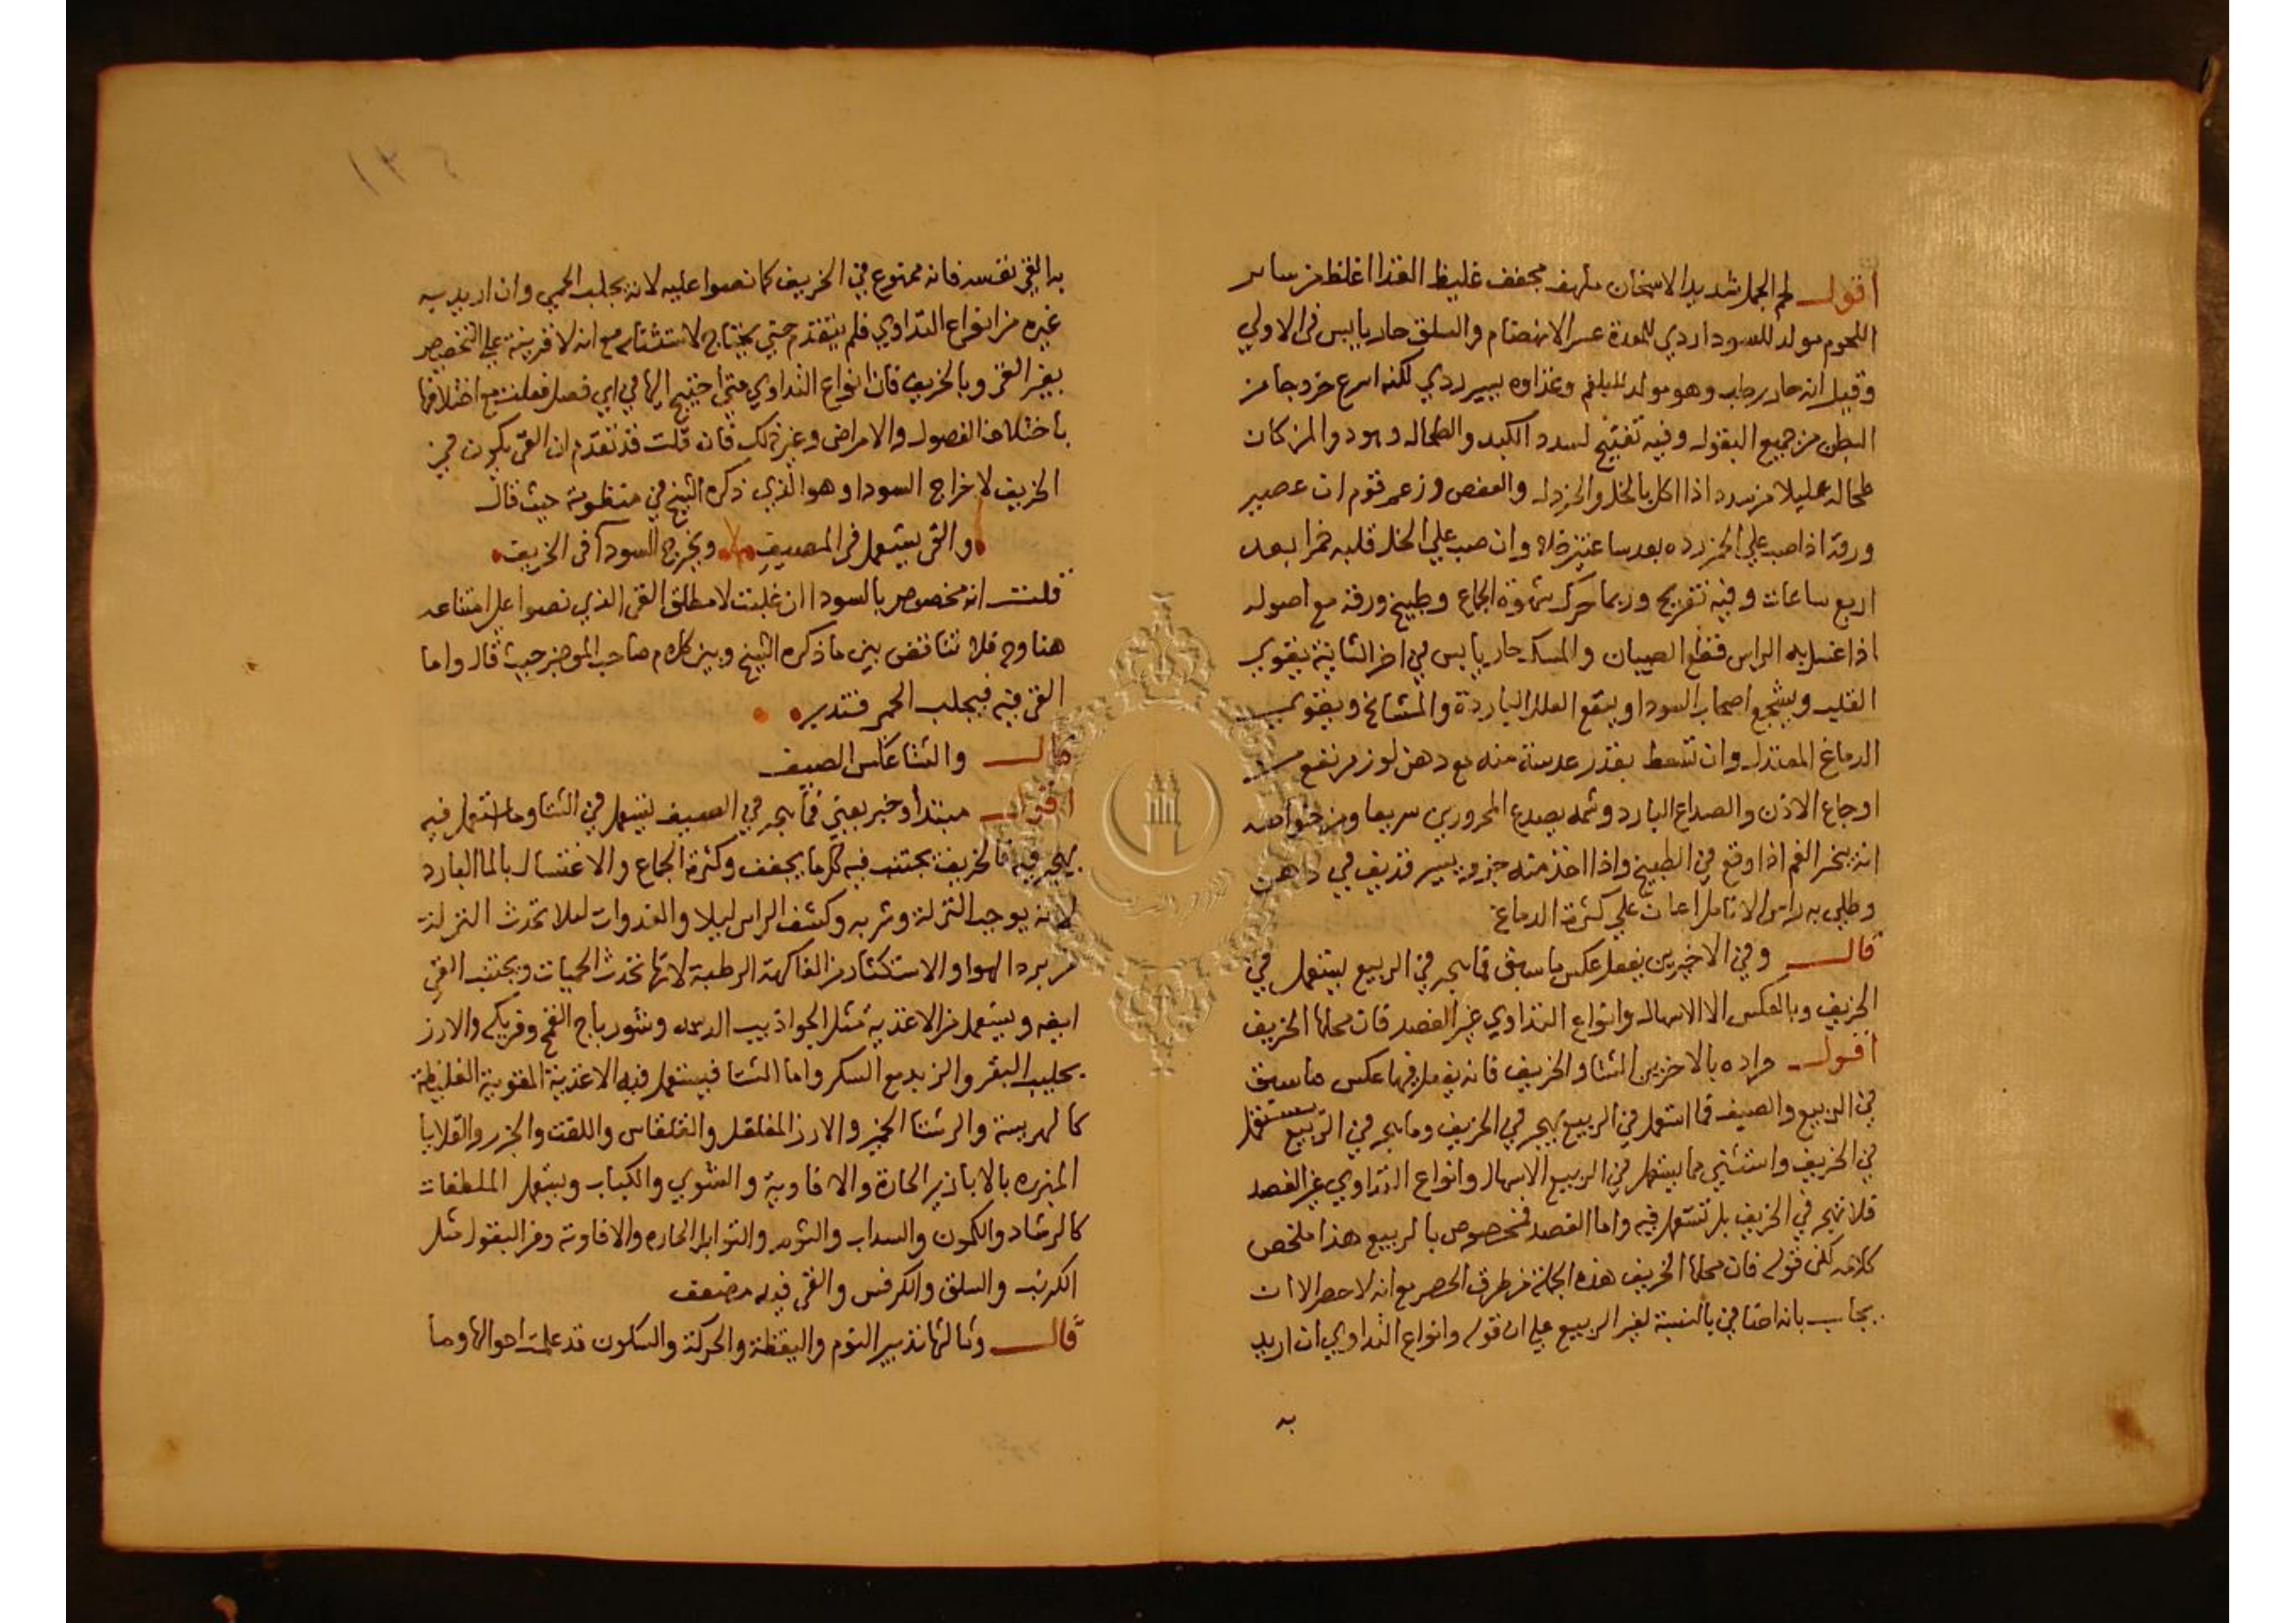 اقول لحم الجمل شديد الاسخان ملهف مجفف غليظ الغذا اغلظ من ساير
اللحوم مولد للسودا ردي للمعدة عسر الانهضام والسلق حار يابس في الاولي
وقيل انه حار رطب وهو مولد للبلغم وغذاوه يسير ردي لكنه اسرع خروجا من
البطن من جميع البقول وفيه تفتيح لسدد الكبد والطحال وهو دوا لمن كان
طحاله عليلا من سدد اذا اكل بالخل والخردل والعفص وزعم قوم ان عصير
ورقه اذا صب علي الخمر رده بعد ساعتين خلا وان صب علي الخل قلبه خمرا بعد
اربع ساعات وفيه تفريح وربما حرك شهوة الجماع وطبيخ ورقه مع اصوله
اذا غسل به الراس قطع الصيبان والمسك حار يابس في اخر الثانية يقوي
القلب ويشجع اصحاب السودا وينفع العلل الباردة والمشايخ ويقوي
الدماغ المعتدل وان تسعط بقدر عدسة منه مع دهن لوز مر نفع من
اوجاع الاذن والصداع البارد وشمه يصدع المحرورين سريعا ومن خواصه
انه يبخر الفم اذا وقع في الطبيخ واذا اخذ منه جزو يسير فذيف في دهن
وطلي به راس الانامل اعان علي كثرة الدماغ
قال وفي الاخيرين يفعل عكس ما سبق فما يهجر في الربيع يستعمل في
الخريف وبالعكس الا الاسهال وانواع التداوي غير الفصد فان محلها الخريف
اقول مراده بالاخرين الشتا والخريف فانه يفعل فيها عكس ما سبق
في الربيع والصيف فما استعمل في الربيع يهجر في الخريف وما يهجر في الربيع يستعمل
في الخريف واستثني مما يستعمل في الربيع الاسهال وانواع التداوي غير الفصد
فلا تهجر في الخريف بل تستعمل فيه واما الفصد فمخصوص بالربيع هذا ملخص
كلامه لكن قوله فان محلها الخريف هذه الجملة من طرق الحصر مع انه لا حصر الا ان
يجاب بانه اضافي بالنسبة لغير الربيع علي ان قوله وانواع التداوي ان اريد
به
به القي نفسه فانه ممنوع في الخريف كما نصوا عليه لانه يجلب الحمي وان اريد به
غيره من انواع التداوي فلم يتقدم حتي يحتاج لاستثنايه مع انه لا قرينة علي التخصيص
بغير القي وبالخريف فان انواع التداوي متي احتيج اليها في اي فصل فعلت مع اختلافها
باختلاف الفصول والامراض وغير ذلك فان قلت قد تقدم ان القي يكون في
الخريف لاخراج السودا وهو الذي ذكره الشيخ في منظومة حيث قال
والقي يستعمل في المصيف ويخرج السودآ في الخريف
قلت انه مخصوص بالسودا ان غلبت لا مطلق القي الذي نصوا علي امتناعه
هنا وح فلا تناقض بين ما ذكره الشيخ وبين كلام صاحب الموجز حيث قال واما
القي فيه فيجلب الحمي فتدبر
قال والشتا عكس الصيف
اقول مبتدا وخبر يعني فما يهجر في الصيف يستعمل في الشتا وما استعمل فيه
يهجر فيه فالخريف يجتنب فيه كل ما يجفف وكثرة الجماع والاغتسال بالما البارد
لانه يوجب النزلة وشربه وكشف الراس ليلا والغدوات ليلا تحدث النزلة
من برد الهوا والاستكثار من الفاكهة الرطبة لانها تحدث الحميات ويجتنب القي
ايضه ويستعمل من الاغذية مثل الجواذيب الدسمه وشورباج القمح وفريكه والارز
بحليب البقر والزبد مع السكر واما الشتا فيستعمل فيه الاغذية المقوية الغليظة
كالهريسة والرشتا الخبز والارز المفلفل والقلقاس واللفت والجزر والقلايا
المبزره بالابازير الحارة والافاوية والشوي والكباب ويستعمل الملطفات
كالرشاد والكمون والسداب والثوم والتوابل الحاره والافاوية ومن البقول مثل
الكرنب والسلق والكرفس والقي فيه مضعف
قال وثالثها تدبير النوم واليقظة والحركة والسكون قد علمت احوالها وما